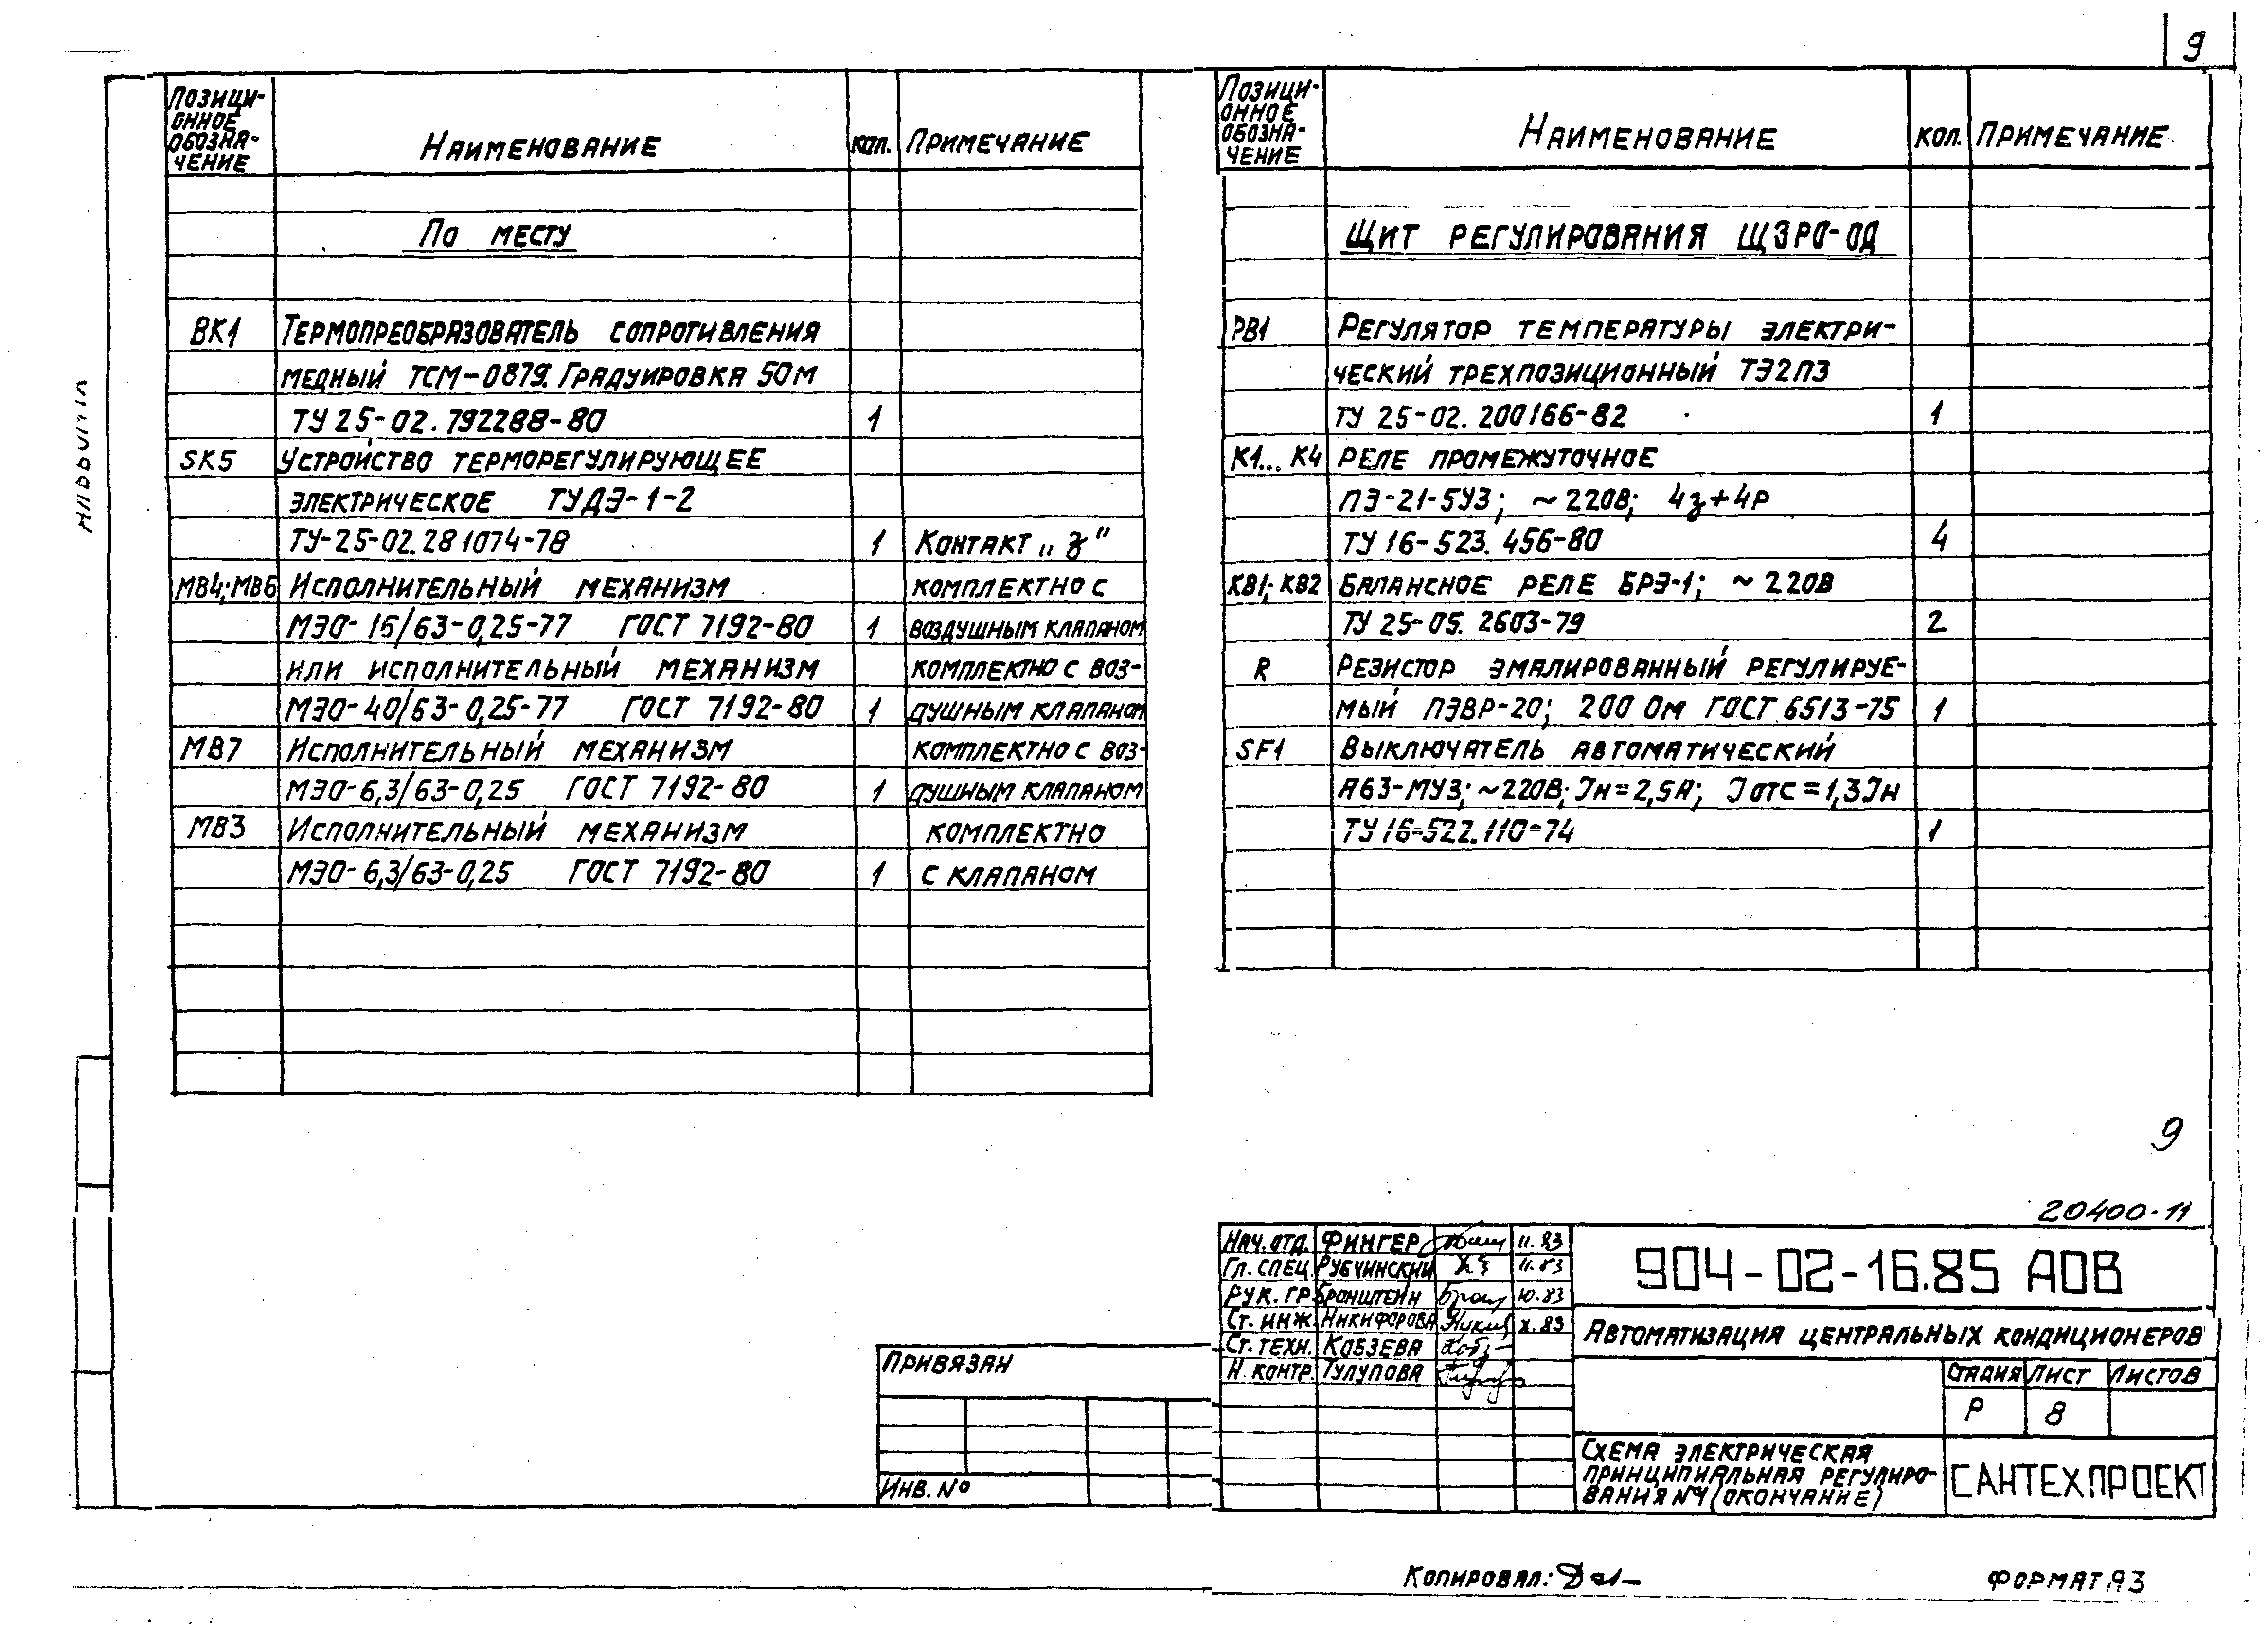 9
Позици-
онное
обозна-
чение
Наименование
кол.
Примечание
По месту
ВК1 Термопреобразователь сопротивления
медный ТСМ-0879. Градуировка 50М
ТУ 25-02.792288-80 1
SK5 Устройство терморегулирующее
электрическое ТУДЭ-1-2
ТУ-25-02.281074-78 1 Контакт „з"
МВ4;МВ6 Исполнительный механизм комплектно с
МЭО-16/63-0,25-77 ГОСТ 7192-80 1 воздушным клапаном
или исполнительный механизм комплектно с воз-
МЭО-40/63-0,25-77 ГОСТ 7192-80 1 душным клапаном
МВ7 Исполнительный механизм комплектно с воз-
МЭО-6,3/63-0,25 ГОСТ 7192-80 1 душным клапаном
МВ3 Исполнительный механизм комплектно
МЭО-6,3/63-0,25 ГОСТ 7192-80 1 с клапаном
Позици-
онное
обозна-
чение
Наименование
кол.
Примечание
Щит регулирования ЩЗРО-ОД
РВ1 Регулятор температуры электри-
ческий трехпозиционный ТЭ2П3
ТУ 25-02.200166-82 1
К1... К4 Реле промежуточное
ПЭ-21-5У3; ~220В; 4з+4р
ТУ 16-523.456-80 4
КВ1; КВ2 Балансное реле БРЭ-1; ~220В
ТУ 25-05.2603-79 2
R Резистор эмалированный регулируе-
мый ПЭВР-20; 200 Ом ГОСТ 6513-75 1
SF1 Выключатель автоматический
А63-МУ3; ~220В; Iн=2,5А; Iотс=1,3Iн
ТУ 16-522.110-74 1
9
20400-11
Нач. отд. Фингер 11.83
Гл. спец. Рубчинский 11.83
Рук. гр. Бронштейн 10.83
Ст. инж. Никифорова X.83
Ст. техн. Кобзева
Н. контр. Тулупова
904-02-16.85 АОВ
Автоматизация центральных кондиционеров
Стадия Лист Листов
Р 8
Схема электрическая
принципиальная регулиро-
вания №4 (окончание)
САНТЕХПРОЕКТ
Привязан
Инв. №
Копировал:
Формат А3